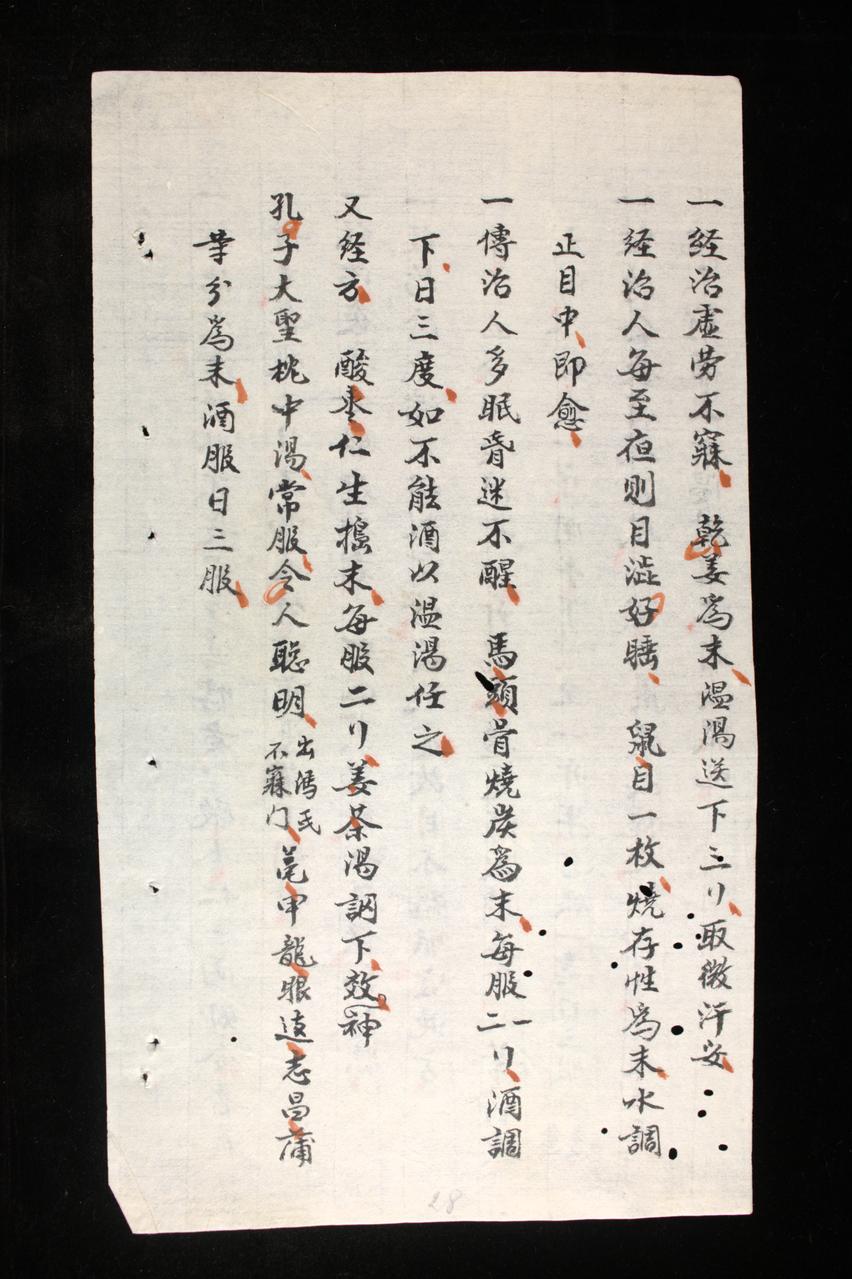 一経治虚劳不寐 乾姜為末温湯送下三刂取微汗安
一経治人每至夜则目澁好睡 鼠目一枚燒存性為末水調
正目中即愈
一傳治人多眠昏迷不醒 馬頭骨燒炭為末每服二一刂酒調
下日三度如不能酒以温湯任之
又経方 酸枣仁生搗末每服二刂姜茶湯調下效神
孔子大聖枕中湯常服令人聡明 出馮氏不寐门 亀甲龍眼遠志昌蒲
等分為末酒服日三服
28